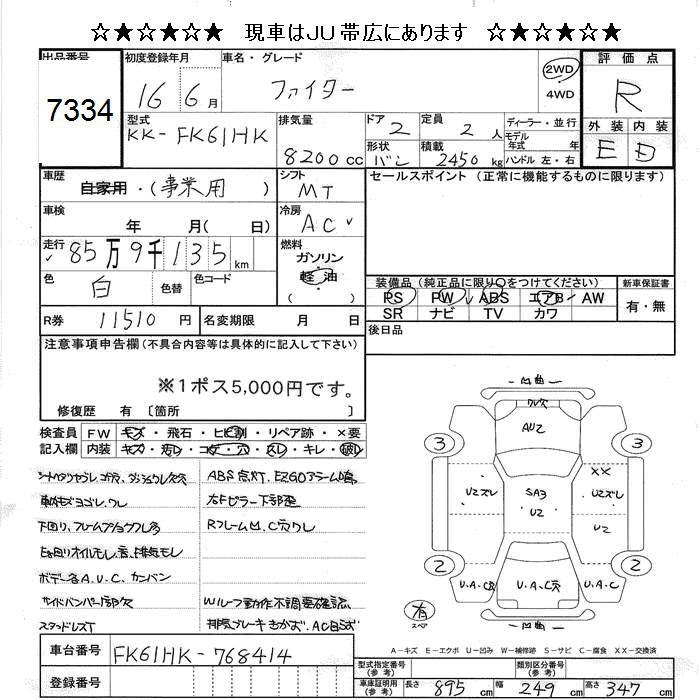 ☆★☆★☆★ 現車はJU帯広にあります ☆★☆★☆★
出品番号
7334
初度登録年月
16 6月
車名・グレード
ファイター
2WD
4WD
評価点
R
外装 内装
E D
型式
KK-FK61HK
排気量
8200cc
ドア
2
形状
バン
定員
2人
積載
2450kg
ディーラー・並行
モデル年式 年
ハンドル 左・右
車歴
自家用・(事業用)
シフト
MT
セールスポイント (正常に機能するものに限ります)
車検
年 月 ( 日)
冷房
AC
走行
85万9千135km
燃料
ガソリン
軽油
( )
色
白
色替
色コード
装備品 (純正品に限り○をつけてください)
PS PW ABS エアB AW
SR ナビ TV カワ
新車保証書
有・無
R券
11510円
名変期限 月 日
後日品
注意事項申告欄(不具合内容等は具体的に記入して下さい)
※1ポス5,000円です。
修復歴 有〔箇所 〕
検査員記入欄
FW キズ・飛石・ヒビ割・リペア跡・×要
内装 キズ・汚レ・コゲ・穴・スレ・キレ・破レ
ABS点灯、EZGOアラーム鳴
右Fピラー下部歪
Rフレーム凹、C穴ワレ
下回り、フレームアクションフレ多
ボデー各A.U.C、カンバン
サイドバンパー1部欠
スタッドレスT
Wルーフ動作不調要確認
凹曲
ワレ欠
AU2
3
3
U2ズレ
SA3
U2
XX
U2ズレ
U2
2
2
U.A.C穴
U.A.C
凹曲
有
スペア
A-キズ E-エクボ U-凹み W-補修跡 S-サビ C-腐食 XX-交換済
車台番号
FK61HK-768414
登録番号
型式指定番号(参考)
類別区分番号(参考)
車庫証明用(参考)
長さ 895cm 幅 249cm 高さ 347cm